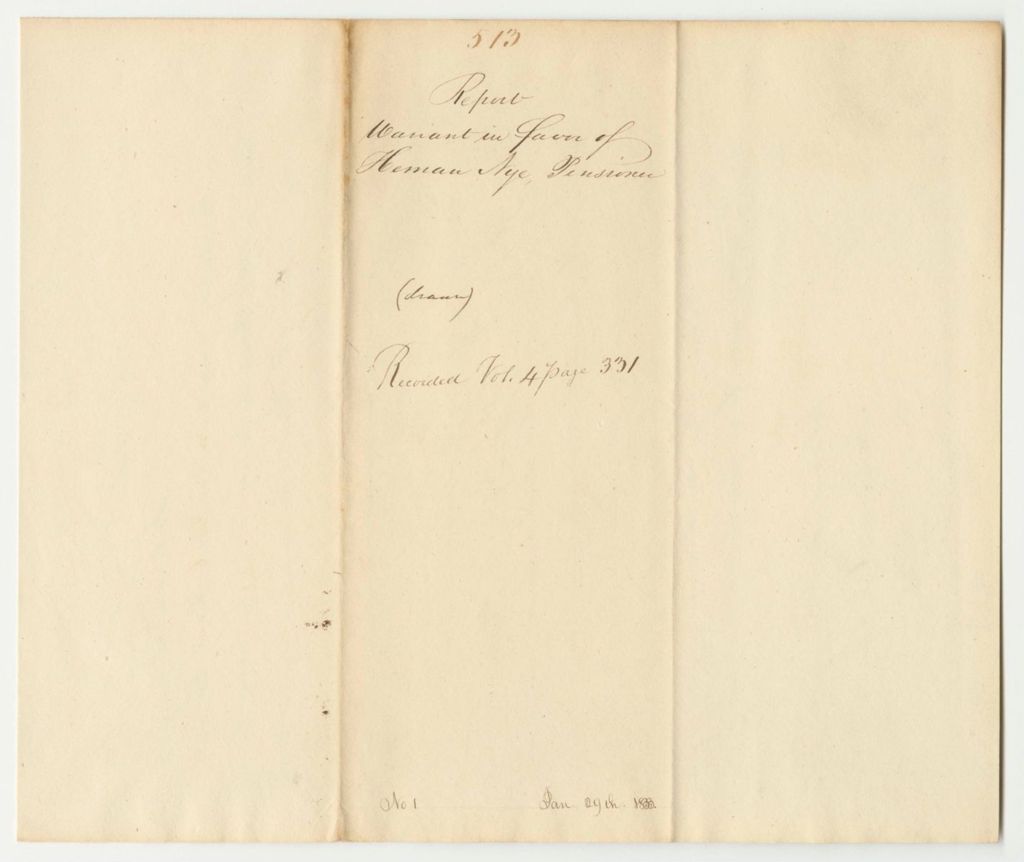 513
Report
Warrant in favor of
Heman Nye, Pensioner
(drawn)
Recorded Vol. 4 page 331
No 1 Jan 29th.